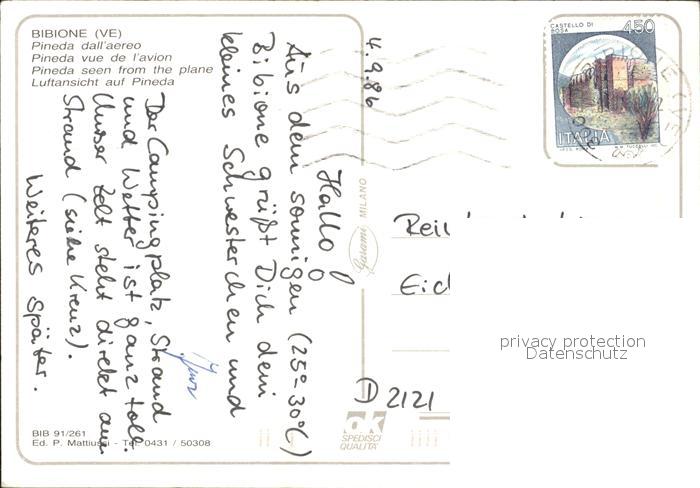 BIBIONE (VE)
Pineda dall'aereo
Pineda vue de l'avion
Pineda seen from the plane
Luftansicht auf Pineda
4.9.86
Hallo
Aus dem sonnigen (25°-30°C)
Bibione grüßt Dich dein
kleines Schwesterchen und
Der Campingplatz, Strand
und Wetter ist ganz toll.
Unser Zelt steht direkt am
Strand (siehe Kreuz).
Weiteres später.
CASTELLO DI
ROSA
450
ITALIA
Garami MILANO
D 2121
ok
SPEDISCI
QUALITA'
BIB 91/261
Ed. P. Mattiussi - Tel. 0431 / 50308
privacy protection
Datenschutz